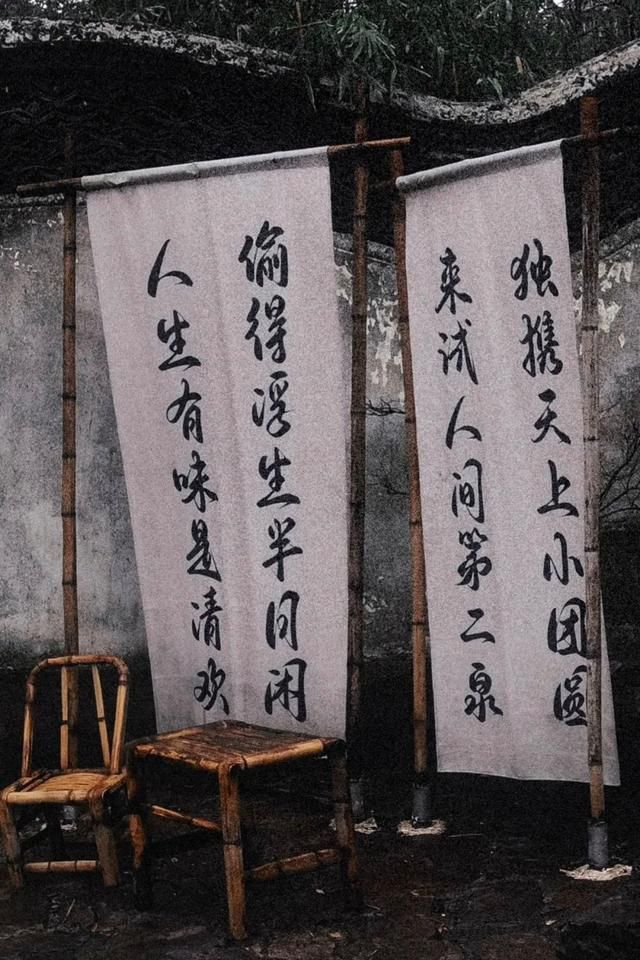 独携天上小团圆
来试人间第二泉
偷得浮生半日闲
人生有味是清欢